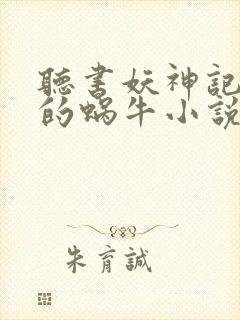 聽書妖神記
的蝸牛小說
朱育誠